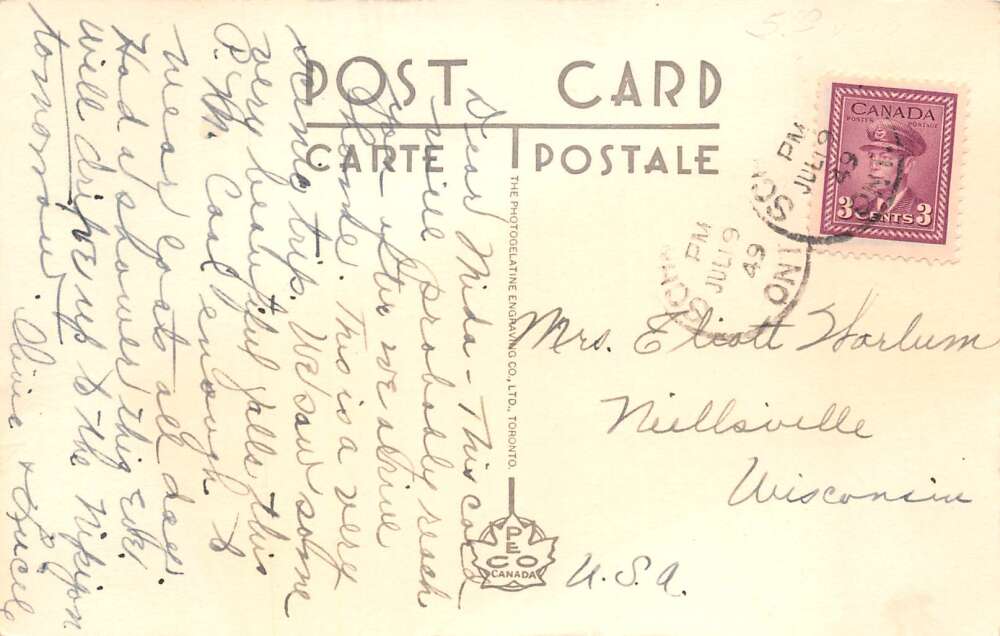 POST CARD
CARTE POSTALE
Dear Mida - This card
will probably reach
you after we arrive
home. This is a very
scenic trip. We saw some
very beautiful falls this
P.M. Cool enough to
wear coats all day.
Had a shower this eve.
will drive up to the Nipigon
tomorrow. Olivie &
THE PHOTOGELATINE ENGRAVING CO., LTD., TORONTO.
PECO
CANADA
CANADA
POSTES POSTAGE
3 CENTS 3
PM
JUL 9
49
ONT.
PM
JUL 9
49
ONT
Mrs. Eliott Horlum
Neillsville
Wisconsin
U.S.A.